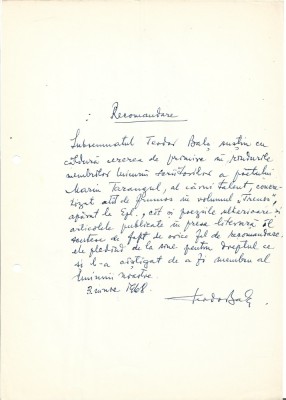 Recomandare
Subsemnatul Teodor Balș susțin cu
căldură cererea de primire în rândurile
membrilor Uniunii Scriitorilor a poetului
Marin Tarangul, al cărui talent, concre-
tizat atât de frumos în volumul „Trenos”,
apărut la Epl., cât și poeziile ulterioare și
articolele publicate în presa literară îl
scutesc de fapt de orice fel de recomandare,
ele pledând de la sine pentru dreptul ce
și l-a câștigat de a fi membru al
Uniunii noastre.
1968.
Teodor Balș